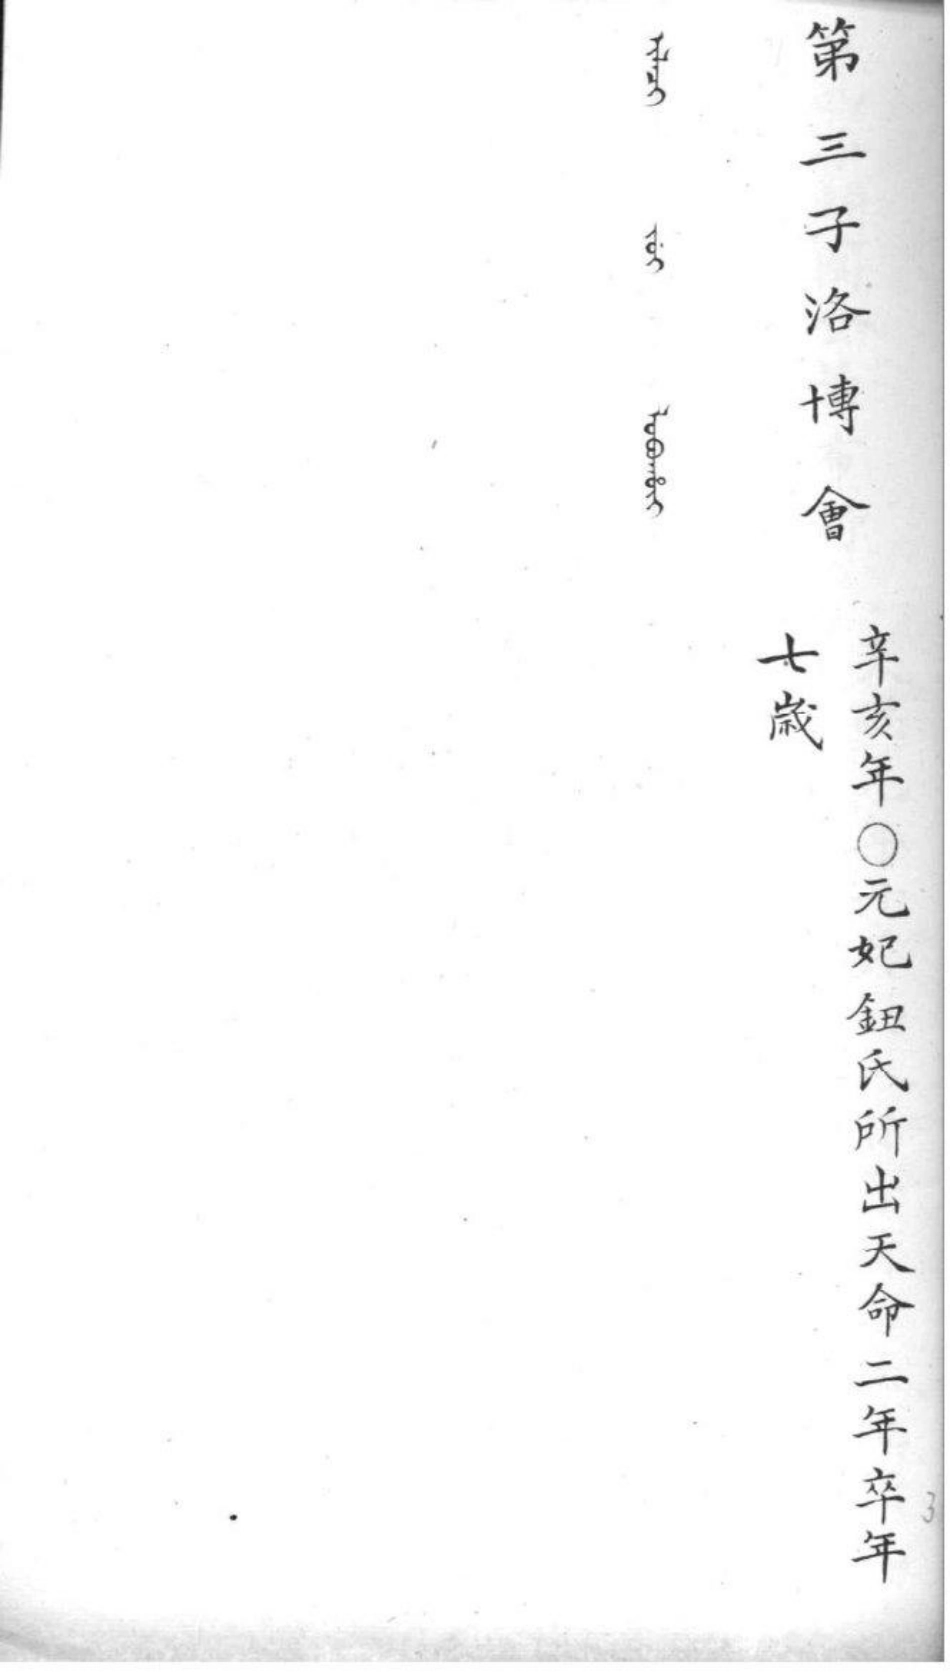 第三子洛博會
辛亥年〇元妃鈕氏所出天命二年卒年
七歳
3